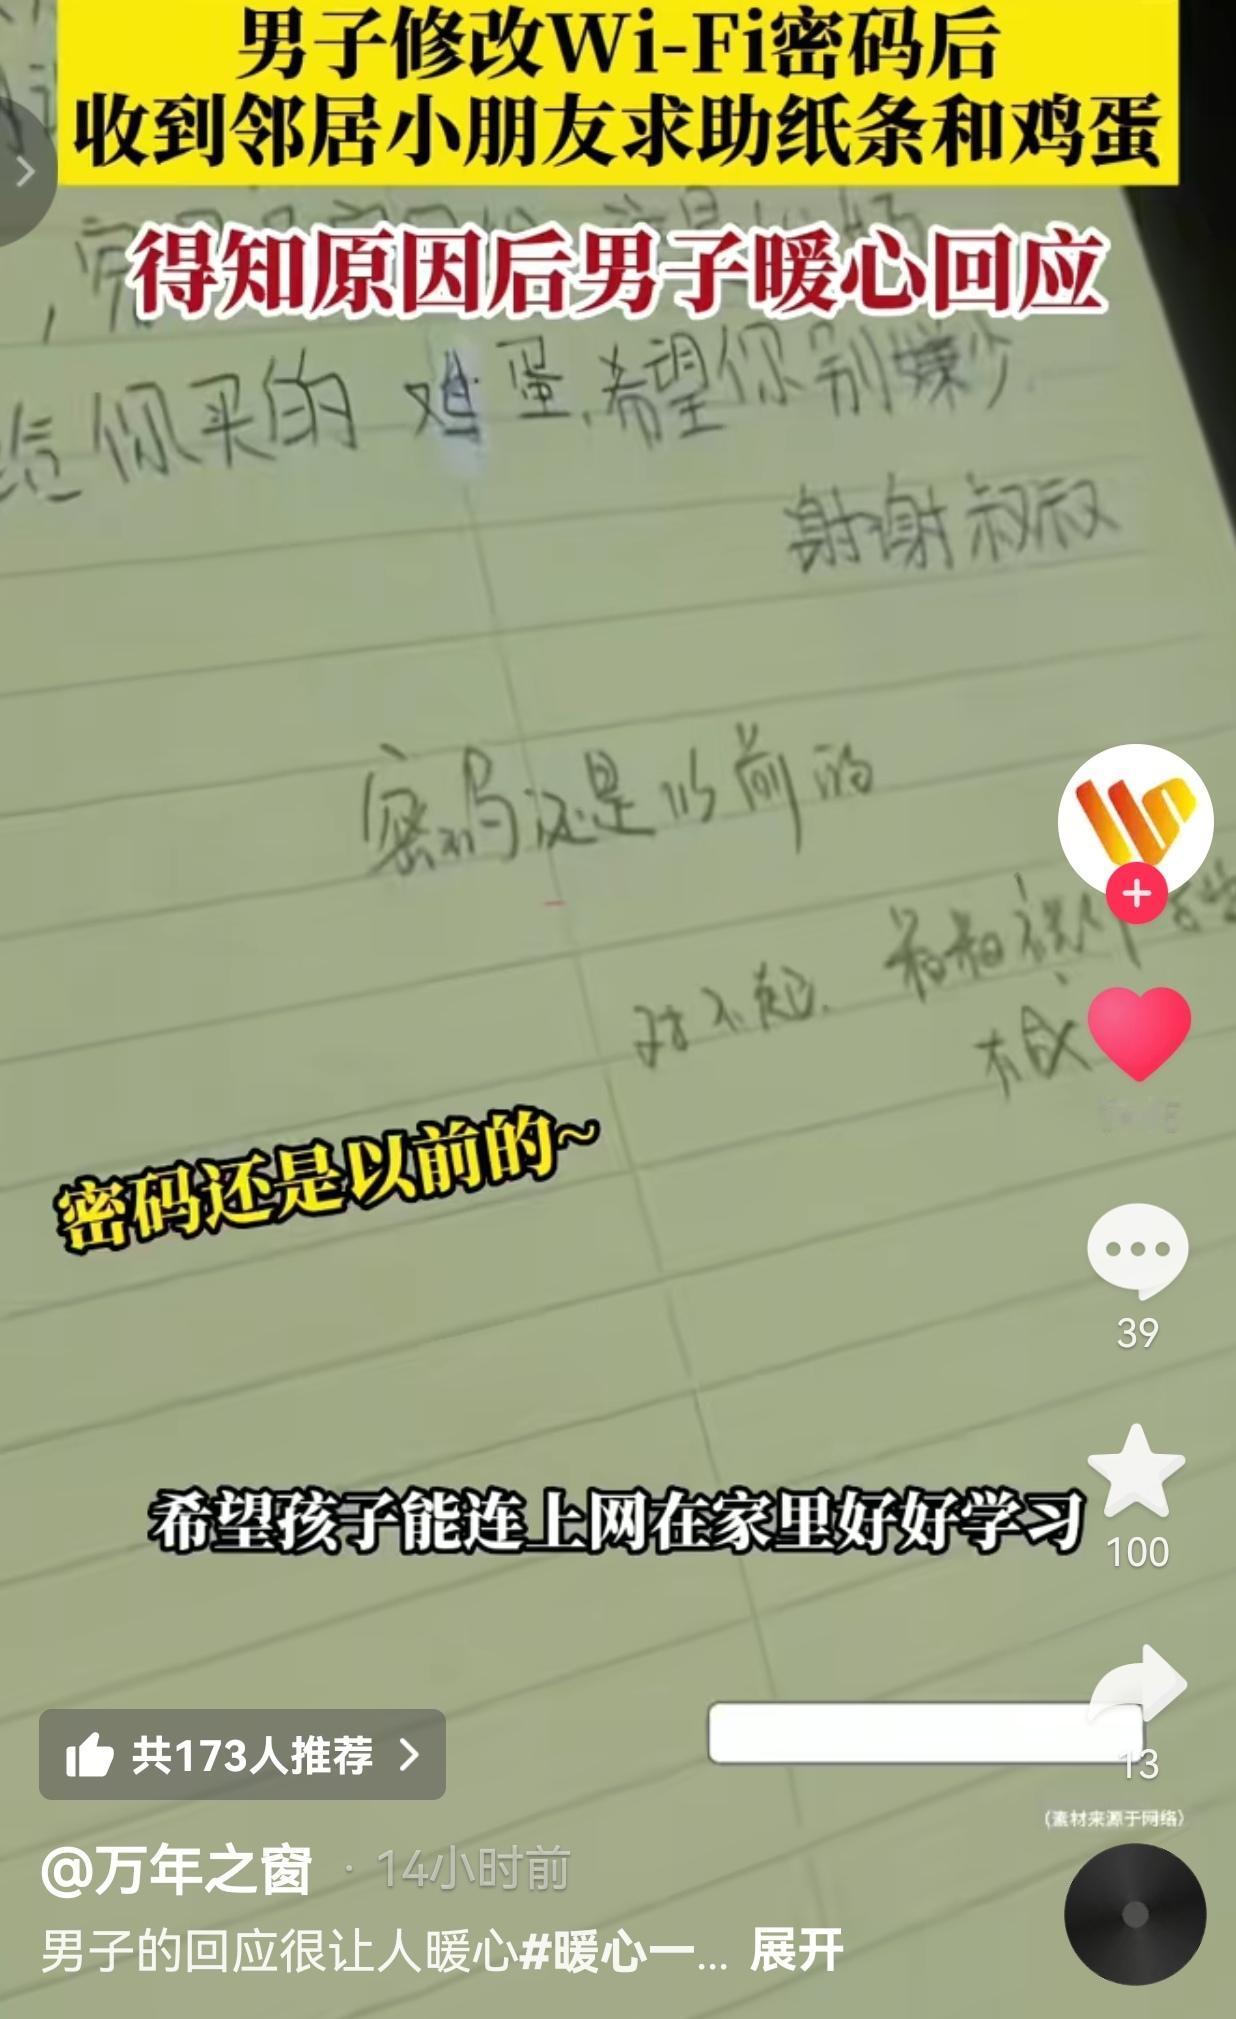 男子修改Wi-Fi密码后
收到邻居小朋友求助纸条和鸡蛋
得知原因后男子暖心回应
给你买的鸡蛋,希望你别嫌少.
谢谢叔叔
密码还是以前的
对不起.
密码还是以前的~
希望孩子能连上网在家里好好学习
39
100
13
共173人推荐
(素材来源于网络)
@万年之窗 · 14小时前
男子的回应很让人暖心#暖心一... 展开